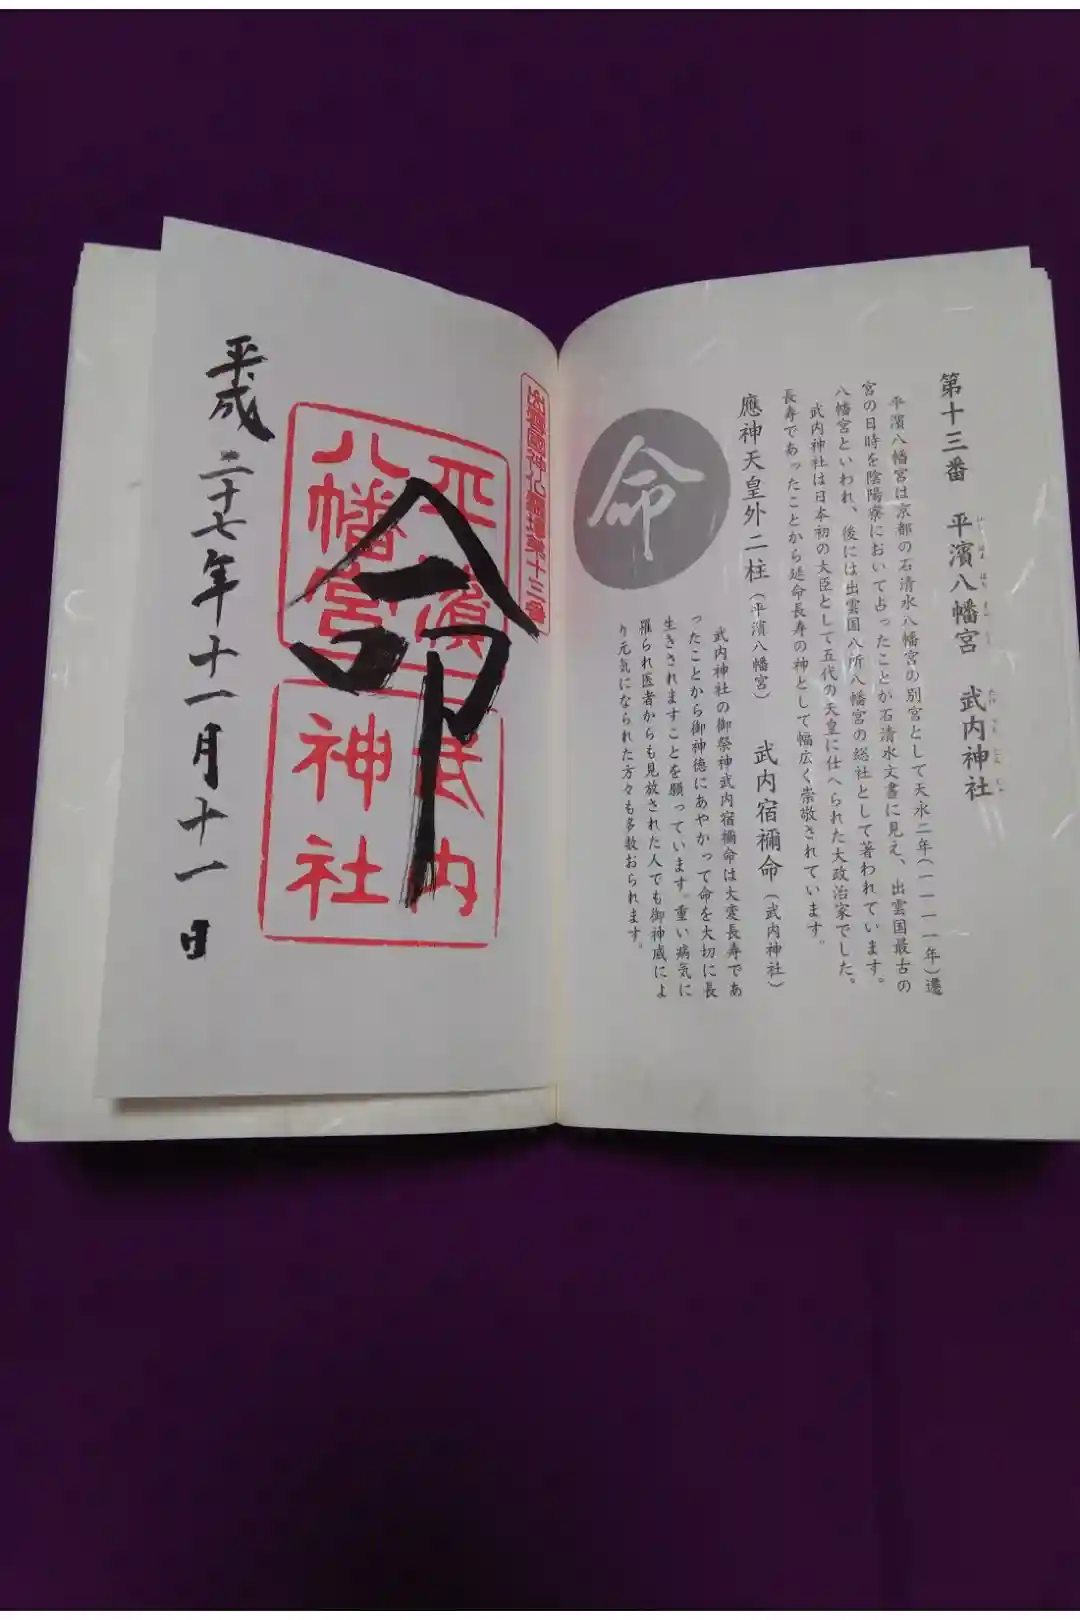 第十三番 平濱八幡宮 武内神社
平濱八幡宮は京都の石清水八幡宮の別宮として天永二年(一一一一年)遷
宮の日時を陰陽寮において占ったことが石清水文書に見え、出雲国最古の
八幡宮といわれ、後には出雲国八所八幡宮の総社として著われています。
武内神社は日本初の大臣として五代の天皇に仕へられた大政治家でした。
長寿であったことから延命長寿の神として幅広く崇敬されています。
應神天皇外二柱(平濱八幡宮) 武内宿禰命(武内神社)
武内神社の御祭神武内宿禰命は大変長寿であ
ったことから御神徳にあやかって命を大切に長
生きされますことを願っています。重い病気に
罹られ医者からも見放された人でも御神威によ
り元気になられた方々も多数おられます。
命
出雲國神仏霊場第十三番
平濱
八幡宮
武内
神社
命
平成二十七年十一月十一日